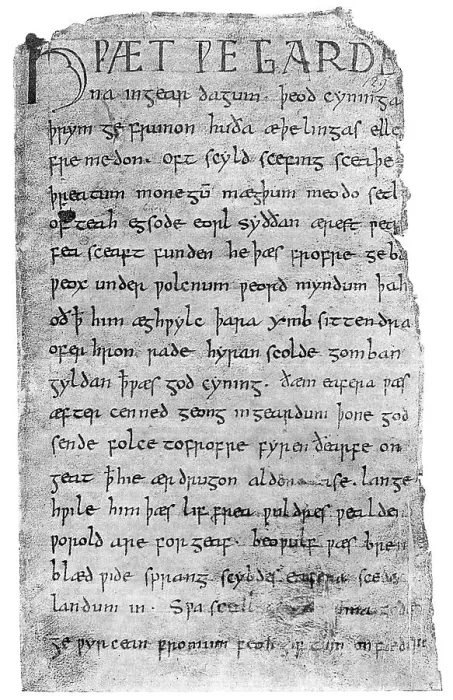 HǷÆT ǷE GARDE
na ingear dagum. þeod cyninga
þrym ge frunon huða æþelingas elle
fremedon. oft scyld scefing sceaþe
þreatum monegū mægþum meodo setl
of teah egsode eorl syððan ærest ƿea
feasceaft funden he þæs frofre geba
ƿeox under ƿolcnum ƿeorð myndum þah
oðꝥ him æghƿylc þara ymb sittendra
ofer hron rade hyran scolde gomban
gyldan ꝥ ƿæs god cyning. ðæm eafera ƿæs
æfter cenned geong in geardum þone god
sende folce tofrofre fyren ðearfe on
geat ꝥ hie ær drugon aldor ase. lange
hƿile him þæs lif frea ƿuldres ƿealden
ƿorold are for geaf. beoƿulf ƿæs brem
blæd ƿide sprang scyldes eafera scede
landum in. Sƿa sceal ma gode
ge ƿyrcean fromum feoh giftum on fæder